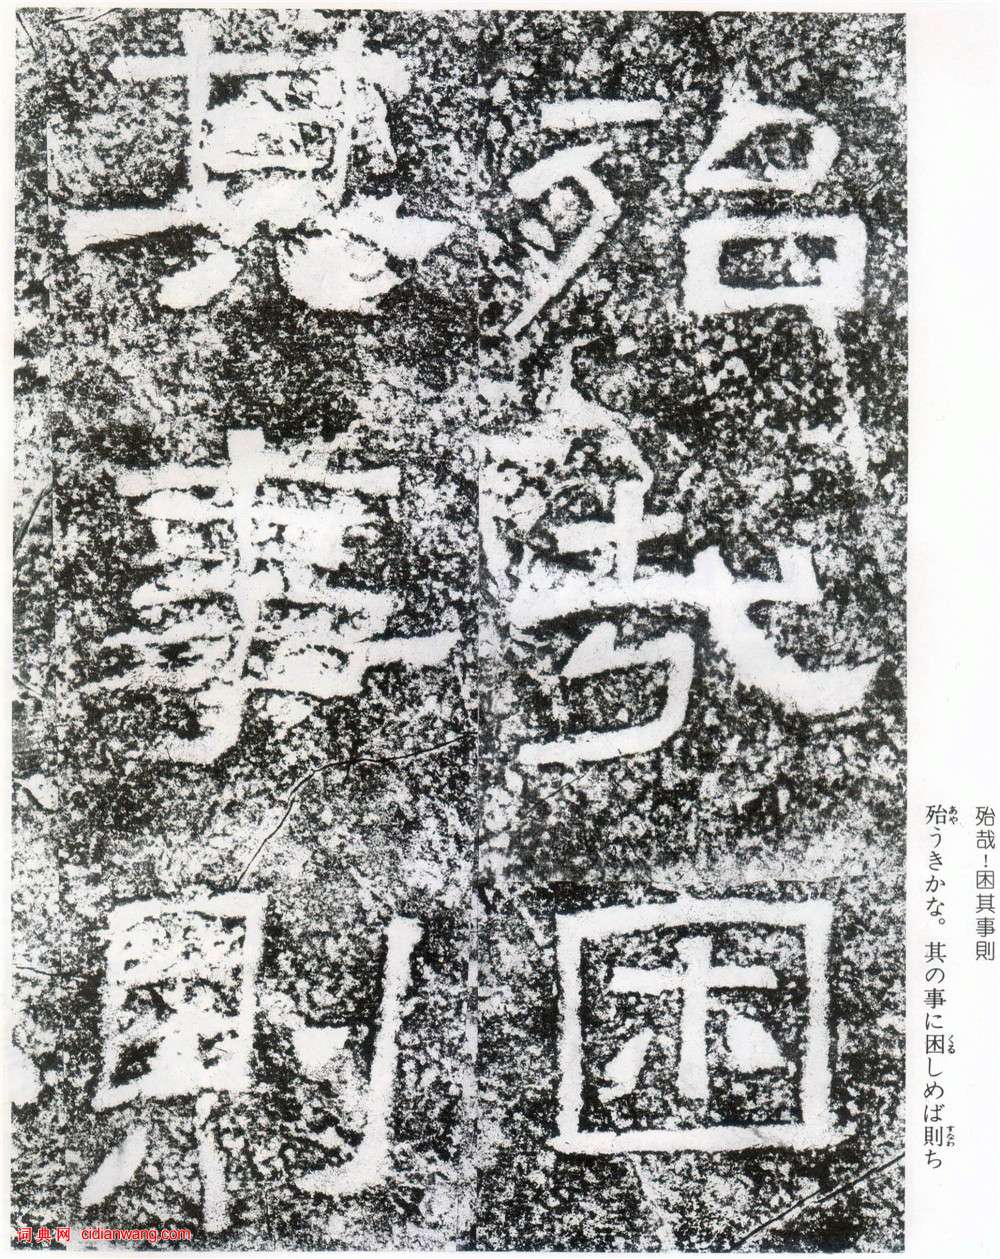 殆哉！困其事則
殆うきかな。其の事に困しめば則ち
あや
くる
すなわ
殆哉困
其事則
词典网 cidianwang.com